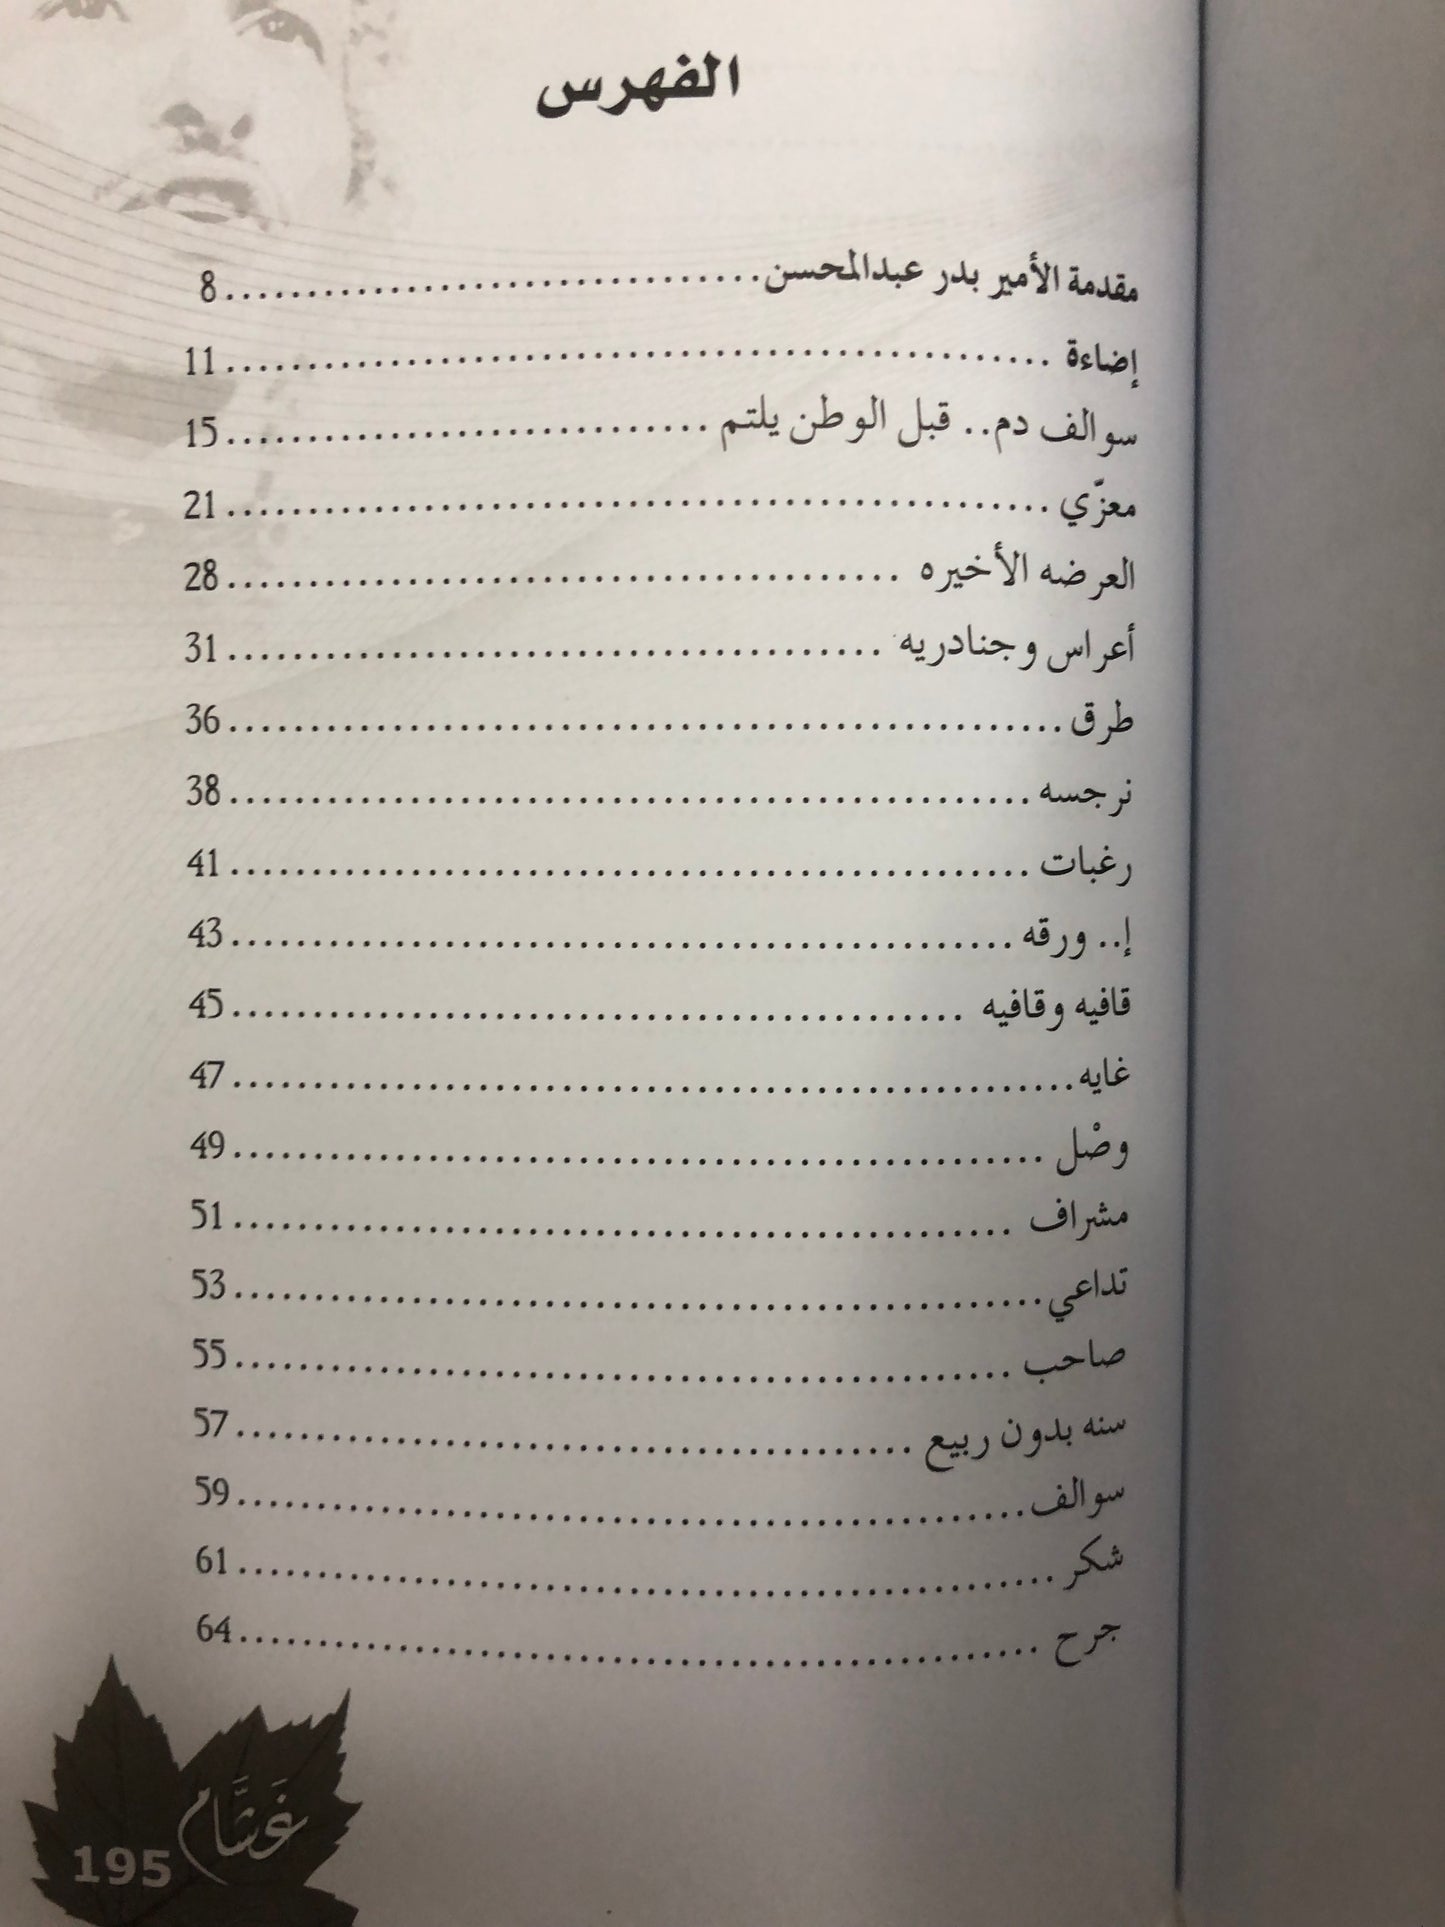 الفهرس
مقدمة الأمير بدر عبدالمحسن................................8
إضاءة ..................................................11
سوالف دم.. قبل الوطن يلتم ..............................15
معزّي ..................................................21
العرضه الأخيره .........................................28
أعراس وجنادريه ........................................31
طرق...................................................36
نرجسه.................................................38
رغبات ................................................41
إ.. ورقه...............................................43
قافيه وقافيه ............................................45
غايه...................................................47
وصْل .................................................49
مشراف ...............................................51
تداعي.................................................53
صاحب ...............................................55
سنه بدون ربيع .........................................57
سوالف................................................59
شكر ..................................................61
جرح .................................................64
غَشَّام
195